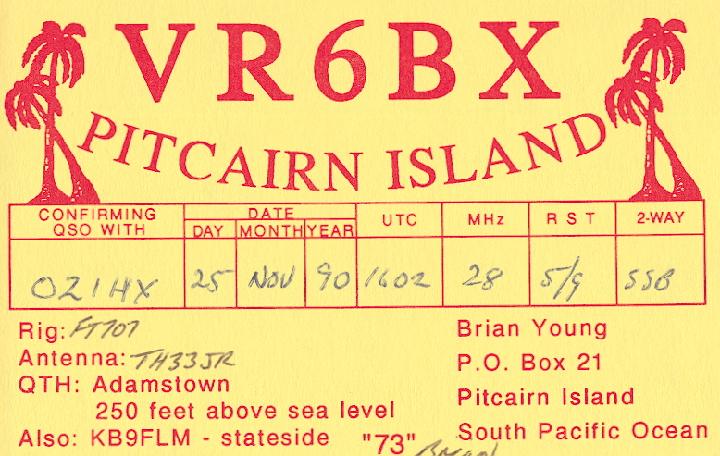 VR6BX
PITCAIRN ISLAND
CONFIRMING QSO WITH DATE UTC MHz RST 2-WAY
DAY MONTH YEAR
OZ1HX 25 NOV 90 1602 28 5/9 SSB
Rig: FT707
Antenna: TH33JR
QTH: Adamstown
250 feet above sea level
Also: KB9FLM - stateside "73"
Brian Young
P.O. Box 21
Pitcairn Island
South Pacific Ocean